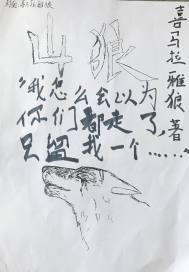 山狼
喜马拉雅狼 著
“我怎么会以为
你们都走了,
只留我一个……